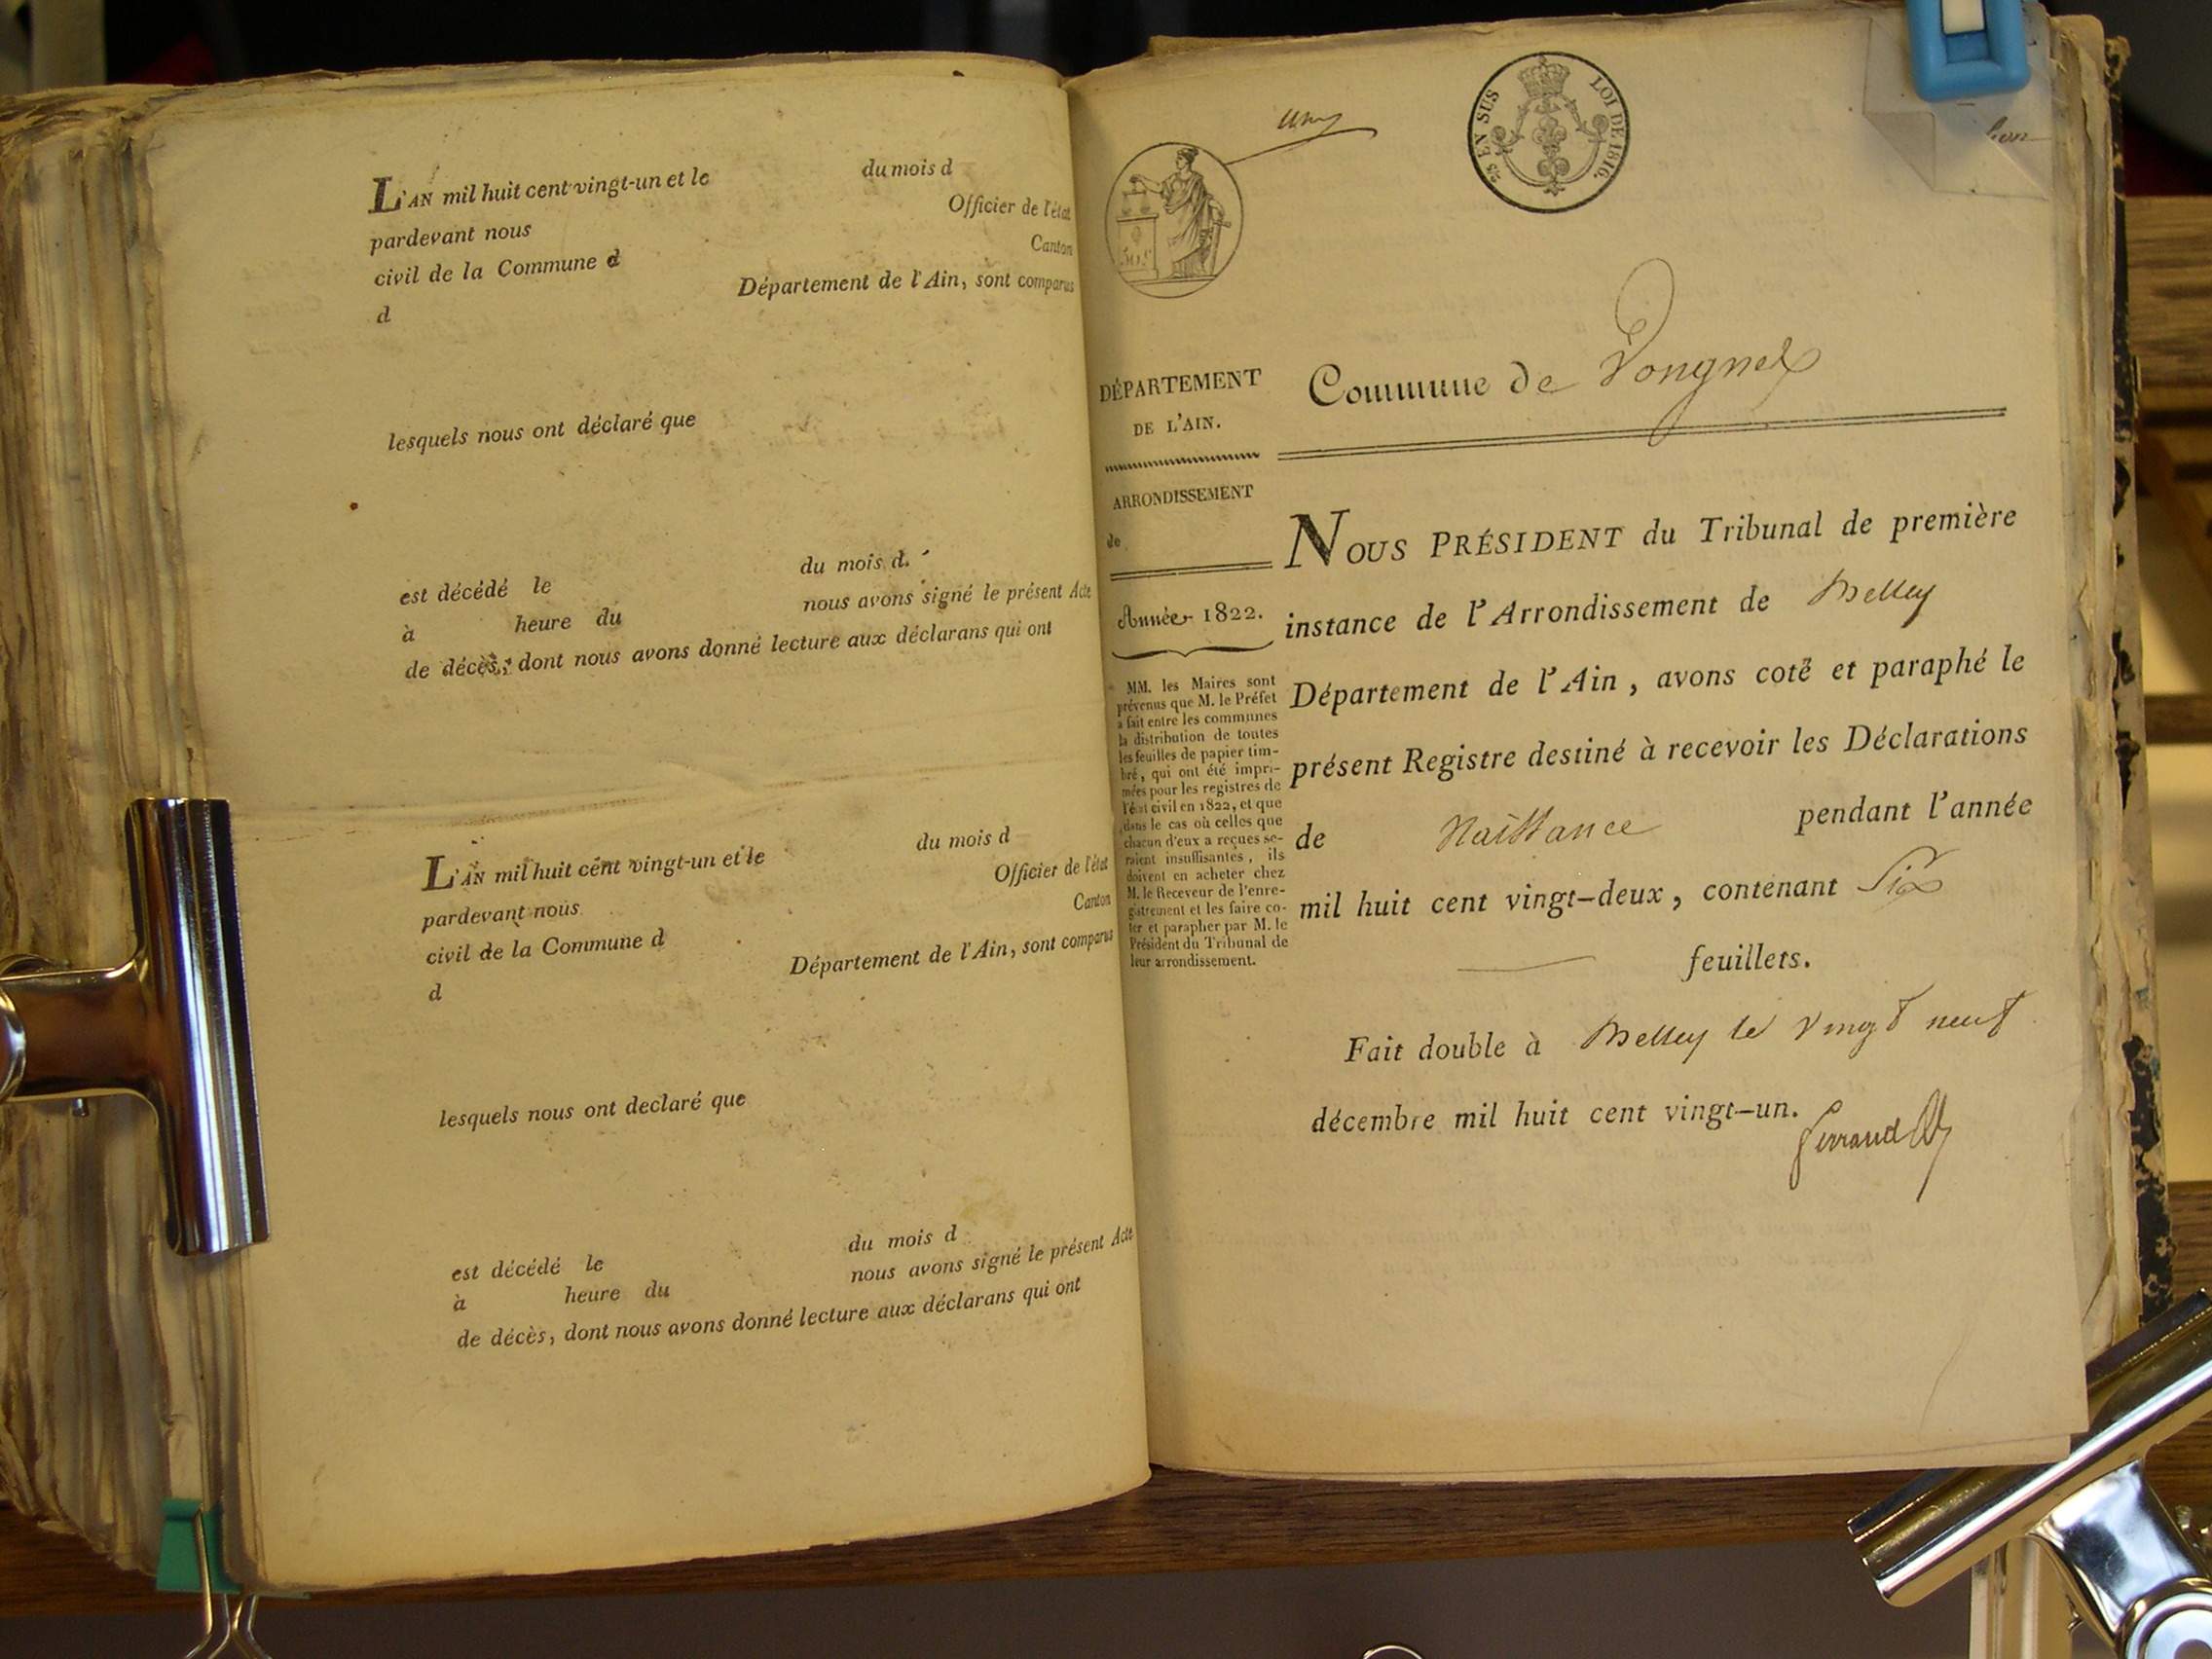 L'AN mil huit cent vingt-un et le du mois d
pardevant nous Officier de l'état
civil de la Commune d Canton
d Département de l'Ain, sont comparus
lesquels nous ont déclaré que
est décédé le du mois d.
à heure du nous avons signé le présent Acte
de décès, dont nous avons donné lecture aux déclarans qui ont
L'AN mil huit cent vingt-un et le du mois d
pardevant nous Officier de l'état
civil de la Commune d Canton
d Département de l'Ain, sont comparus
lesquels nous ont declaré que
est décédé le du mois d
à heure du nous avons signé le présent Acte
de décès, dont nous avons donné lecture aux déclarans qui ont
EN SUS LOI DE 1816.
DÉPARTEMENT
DE L'AIN.
ARRONDISSEMENT
de
Année 1822.
MM. les Maires sont
prévenus que M. le Préfet
a fait entre les communes
la distribution de toutes
les feuilles de papier tim-
bré, qui ont été impri-
mées pour les registres de
l'état civil en 1822, et que
dans le cas où celles que
chacun d'eux a reçues se-
raient insuffisantes, ils
doivent en acheter chez
M. le Receveur de l'enre-
gistrement et les faire co-
ter et parapher par M. le
Président du Tribunal de
leur arrondissement.
Commune de Vongnes
NOUS PRÉSIDENT du Tribunal de première
instance de l'Arrondissement de Belley
Département de l'Ain, avons coté et paraphé le
présent Registre destiné à recevoir les Déclarations
de Naissance pendant l'année
mil huit cent vingt-deux, contenant Six
feuillets.
Fait double à Belley le vingt neuf
décembre mil huit cent vingt-un.